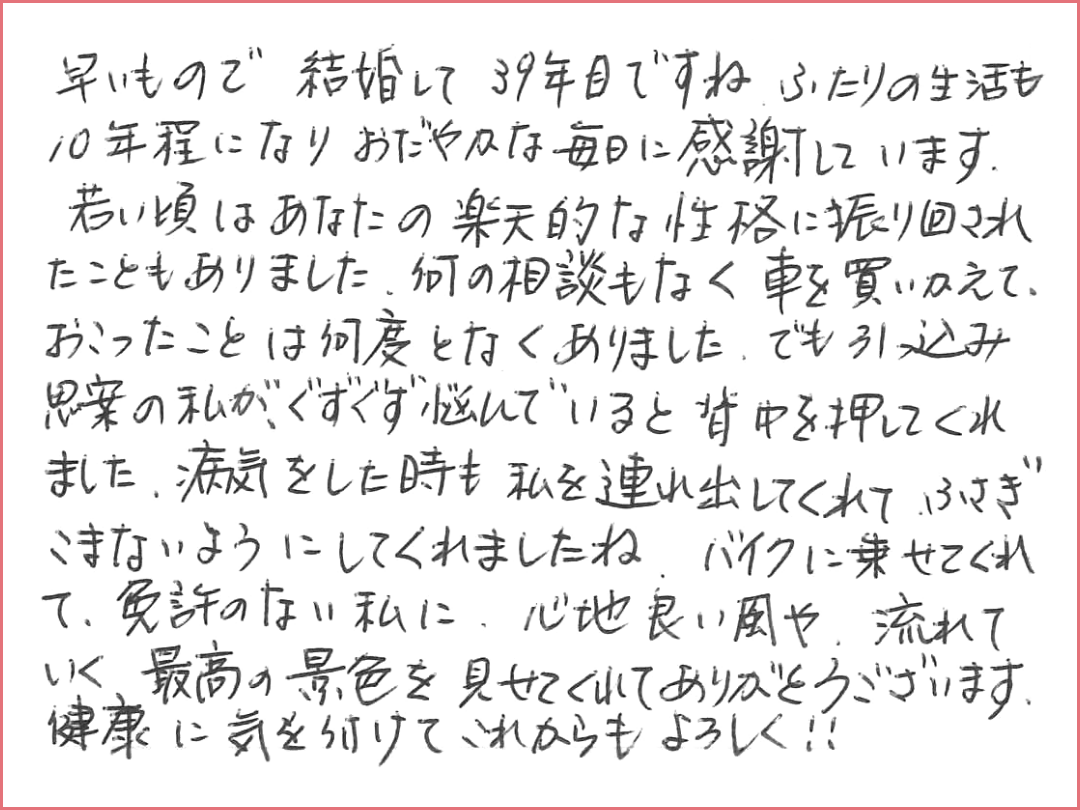 早いもので 結婚して 39年目ですね、ふたりの生活も
10年程になり おだやかな毎日に感謝しています。
若い頃はあなたの楽天的な性格に振り回され
たこともありました、何の相談もなく車を買いかえて、
おこったことは何度となくありました、でも引っ込み
思案の私が、ぐずぐず悩んでいると背中を押してくれ
ました、病気をした時も私を連れ出してくれて、ふさぎ
こまないようにしてくれましたね、バイクに乗せてくれ
て、免許のない私に、心地良い風や、流れて
いく最高の景色を見せてくれてありがとうございます、
健康に気を付けてこれからもよろしく!!